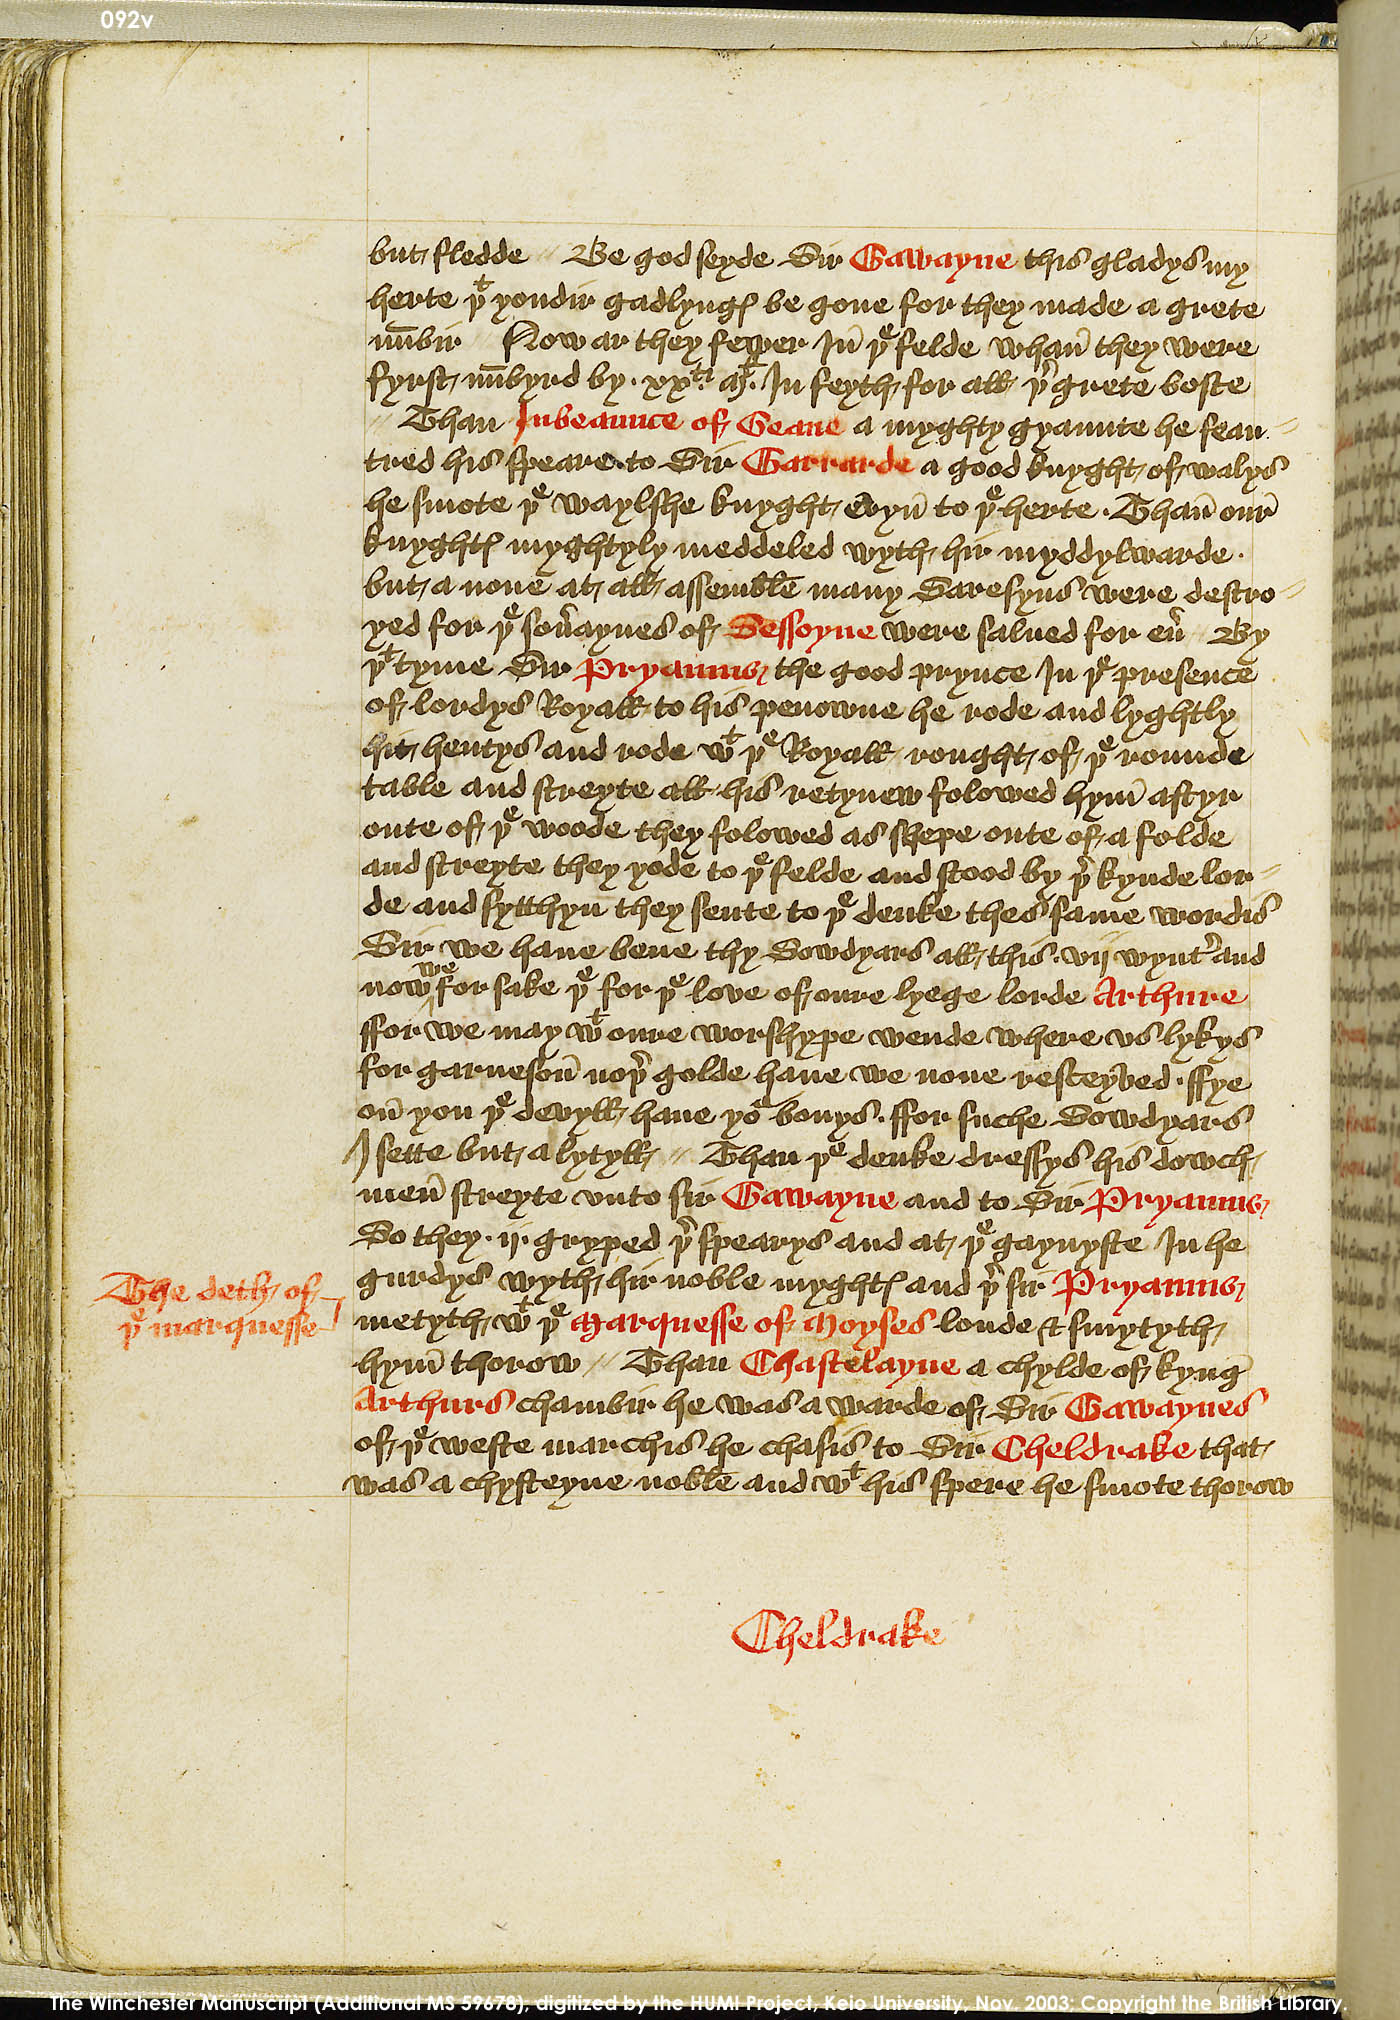 092v
but fledde // Be god seyde Sir Gawayne this gladys my
herte þt yondir gadlyngꝭ be gone for they made a grete
nūbir // Now ar they fewer In̄ þe felde whan̄ they were
fyrst nūbyrd by · xxti Mł · In feyth for all þr grete boste
// Than Jubeaunce of Geane a myghty gyaunte he feau-
tred his speare to Sir Garrarde a good knyght of walys
he smote þe waylshe knyght evyn̄ to þe herte · Than̄ our̄
knyghtꝭ myghtyly meddeled wyth hir myddylwarde ·
but a none at all assemblē many Saresyns were destro-
yed for þe sou̾aynes of Sessoyne were salued for eu̾ // By
þt tyme Sir Pryamus the good prynce In þe presence
of lordys Royall to his penowne he rode and lyghtly
hit hentys and rode wt þe Royall rought of þe rounde
table and streyte all his retynew folowed hym̄ aftyr
oute of þe woode they folowed as shepe oute of a folde
and streyte they yode to þe felde and stood by þr kynde lor-
de and sytthyn̄ they sente to þe deuke thes same wordis
Sir we haue bene thy Sowdyars all this · vij wyntr and
now we for sake þe for þe love of oure lyege lorde Arthure
ffor we may wt oure worshype wende where vs lykys
for garneson̄ noþr golde haue we none resceyved · ffye
on̄ you þe devyll haue yor bonys · ffor suche Sowdyars
I sette but a lytyll // Than þe deuke dressys his dowch
men̄ streyte vnto sir Gawayne and to Sir Pryamus
So they · ij · gryped þr spearys and at þe gaynyste In he
gurdys wyth hir noble myghtꝭ and þr sir Pryamus
metyth wt þe Marquesse of Moyses londe & smytyth
hym̄ thorow // Than Chastelayne a chylde of kynḡ
Arthurs chambir he was a warde of Sir Gawaynes
of þe weste marchis he chasis to Sir Cheldrake that
was a chyfteyne noblē and wt his spere he smote thorow
The deth of
þe marquesse
Cheldrake
The Winchester Manuscript (Additional MS 59678), digitized by the HUMI Project, Keio University, Nov. 2003; Copyright the British Library.